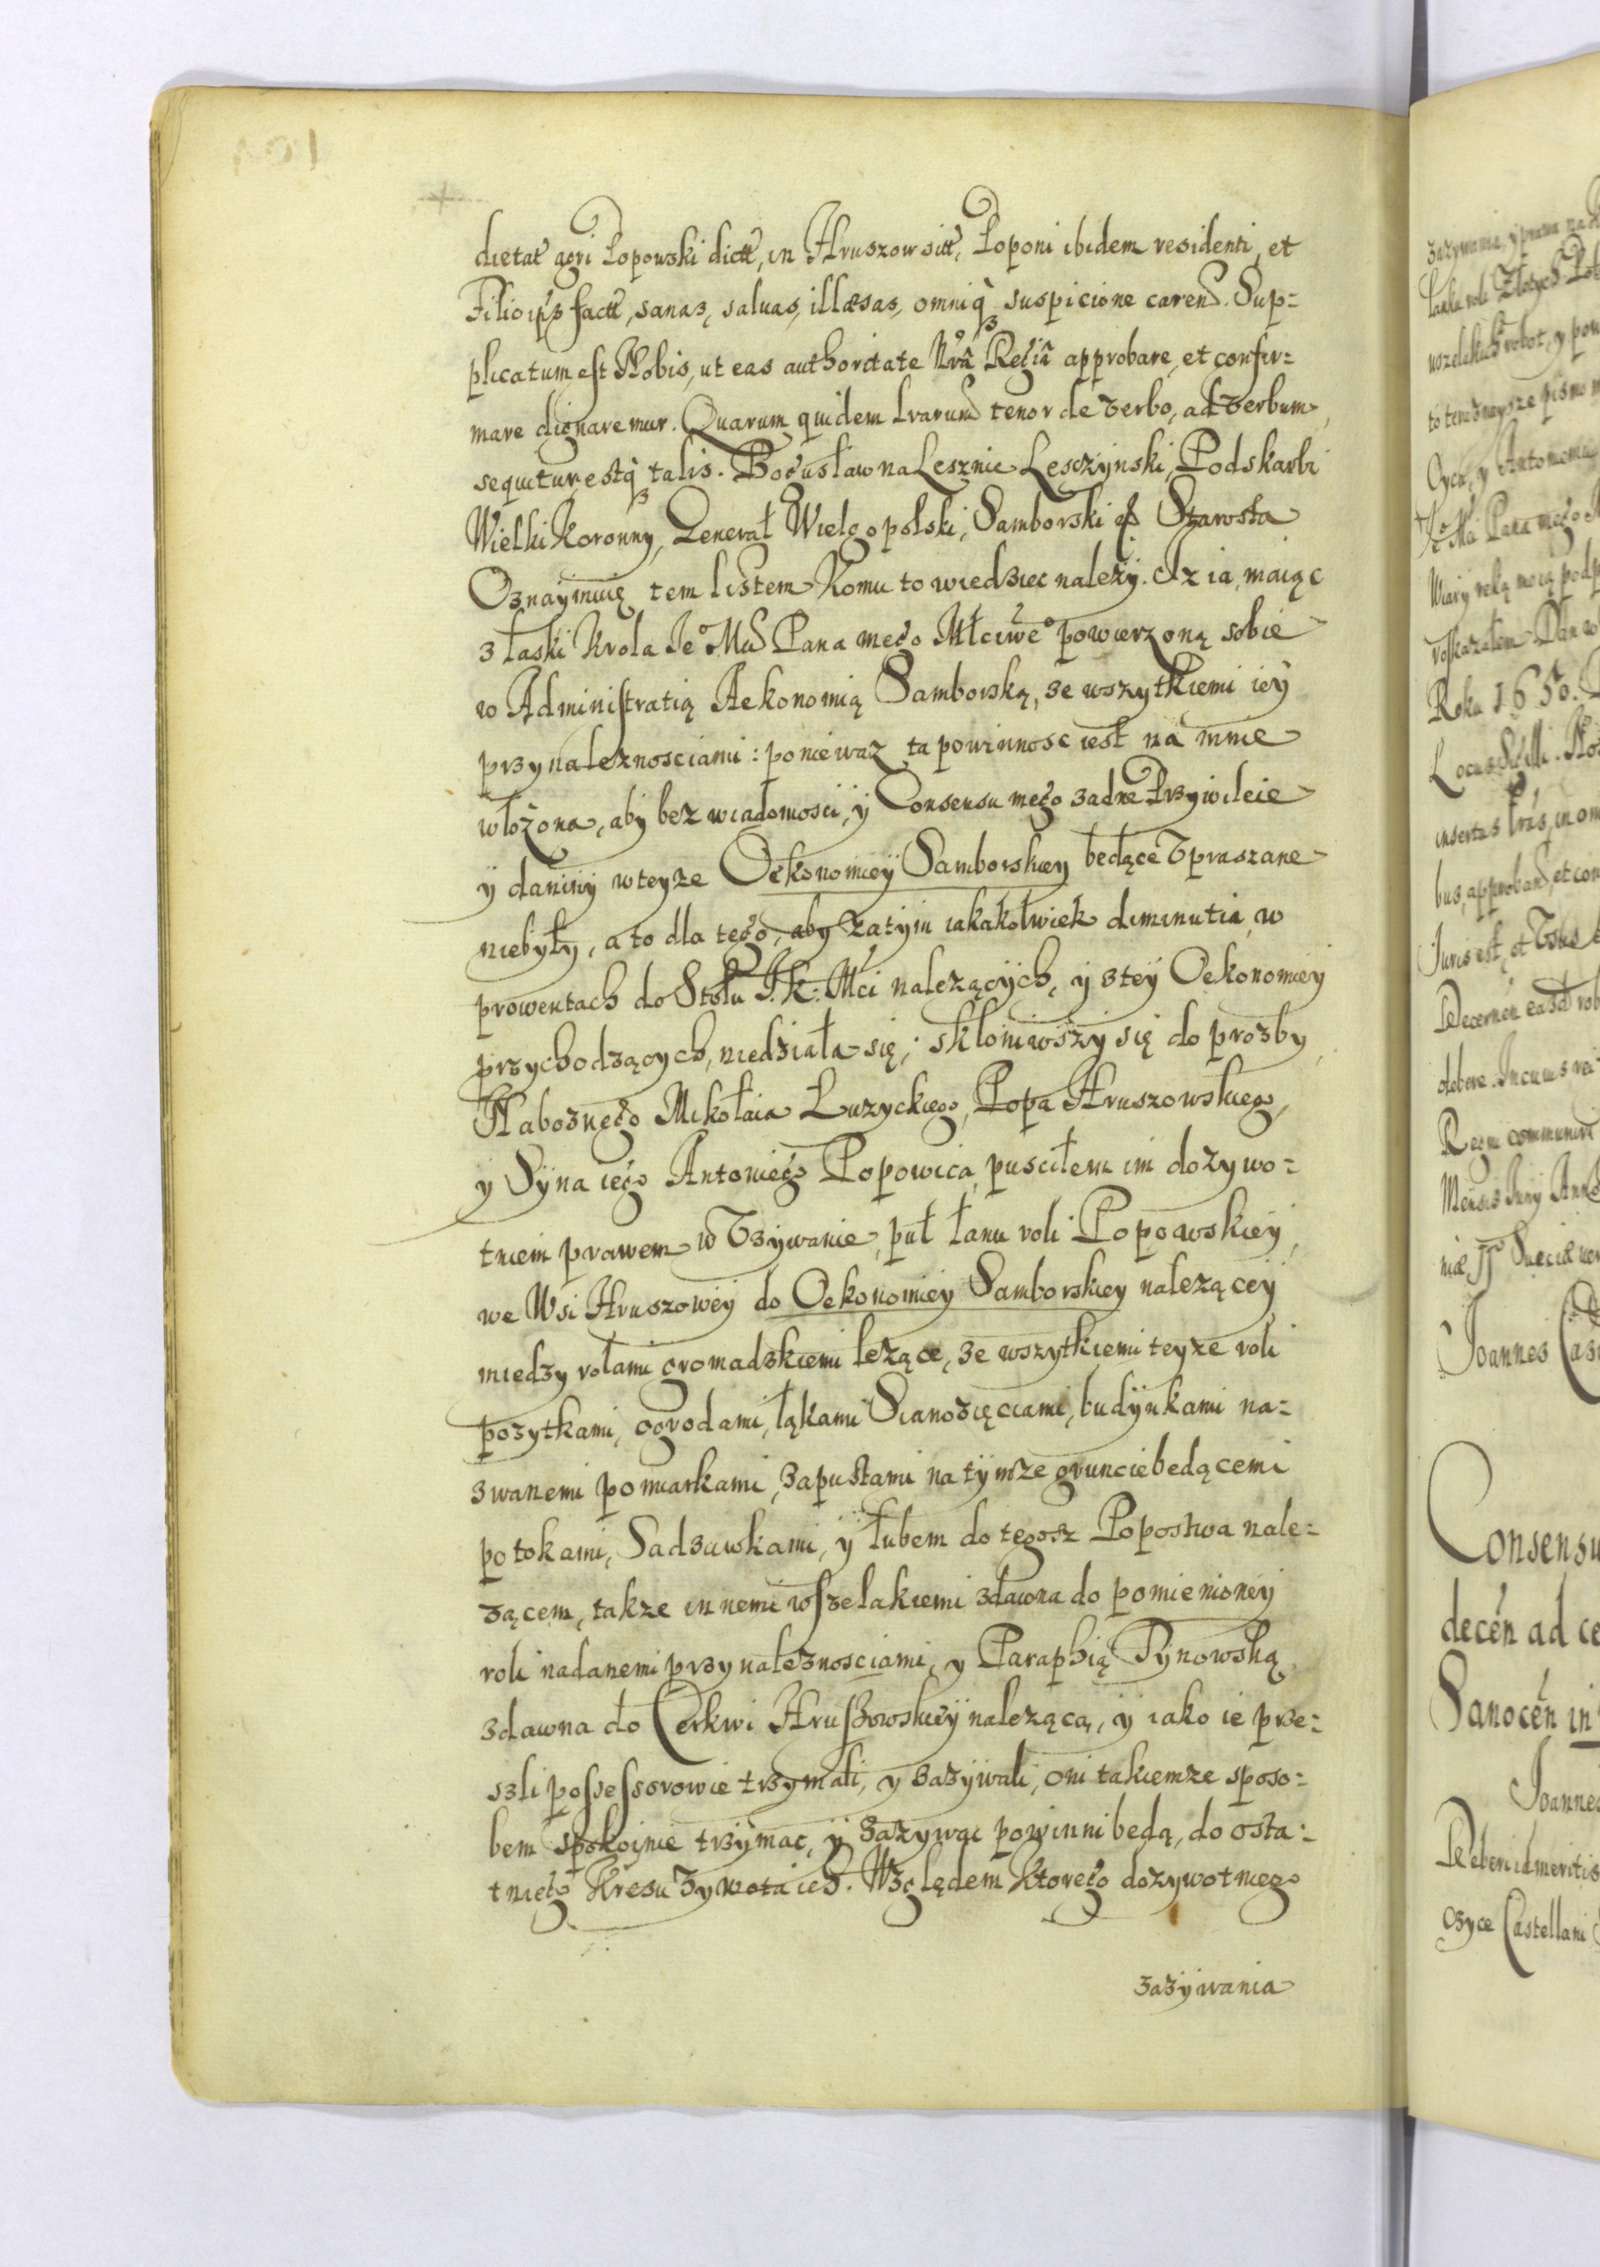 dietat agri Popowski dictt, in Hruszow sitt, Poponi ibidem residenti, et
Filio ipṡ factt, sanas, saluas, illæsas, omniq̀ʒ suspicione carend. Sup=
plicatum est Nobis, ut eas authoritate Nrâ Regiâ approbare, et confir=
mare dignaremur. Quarum quidem lrarum tenor de verbo, ad verbum
sequitur, estq̀ʒ talis. Bogusław na Lesznie Lesczynski, Podskarbi
Wielki Koronny, Generał Wielgopolski, Samborski &c Starosta
Oznaymuię tem listem Komu to wiedziec nalezy. Iz ia maiąc
z łaski Krola Ie° Mci Pana mego Młciwe° powierzoną sobie
w Administratią Aekonomią Samborską, ze wszytkiemi iey
przynaleznosciami: poniewaz ta powinnosc iest na mnie
włozona, aby bez wiadomosci, y Consensu mego zadne Przywileie
y daniny w teyze Oekonomiey Samborskiey będące Vpraszane
niebyły, a to dla tego, aby zatym iakakolwiek diminutia w
prowentach do Stołu J. K. Mci nalezących, y z tey Oekonomiey
przychodzących, niedziała się; skłoniwszy się do prozby
Naboznego Mikołaia Łuzyckiego, Popa Hruszowskiego,
y Syna iego Antoniego Popowica, pusciłem im dozywo=
tniem prawem w Vzywanie, puł łanu roli Popowskiey,
we Wsi Hruszowey do Oekonomiey Samborskiey nalezącey
miedzy rolami gromadzkiemi lezące, ze wszytkiemi teyze roli
pozytkami, ogrodami, łąkami Sianozięciami, budynkami na=
zwanemi pomiarkami, zapustami na tymze gruncie bedącemi
potokami, Sadzawkami, y łubem do tegosz Popostwa nale=
zącem, takze innemi wszelakiemi zdawna do pomienioney
roli nadanemi przynaleznosciami, y Paraphią Tynowską
zdawna do Cerkwi Hruszowskiey nalezącą, y iako ie prze=
szli possessorowie trzymali, y zazywali, oni takiemze sposo=
bem spokoinie trzymac, y zazywac powinni będą, do osta=
tniego Kresu Zywota ich. Względem Ktorego dozywotniego
zazywania
zazywania, y prawa na
wszelakich robot, y pow
Oycu, y Antoniemu
Mci Pana mego
Wiary ręką moią podp
roskazałem. Dan w
Roku 1650.
Locus Sigilli.
insertas lras, in om
bus, approband, et con
Iuris est, et Vsus
debere. In cuius rei
Regni communiri
Mensis Iuny Anno
Joannes Casi
Consensu
decen̄ ad ce
Sanocen̄ in
Joannes
Deberi id meritis
ozyce Castellani